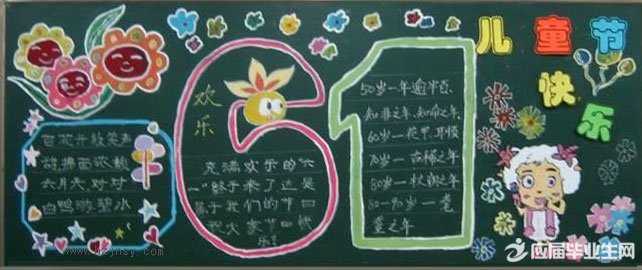 儿童节
快乐
欢乐
61
百花开放笑声
六月天,对对
白鸭游碧水
充满欢乐的“六
一”终于来了这是
属于我们的节日
祝大家节日快
乐!
50岁一年逾半百、
知非之年、知命之年
60岁一花甲、耳顺
70岁一古稀之年
80岁一杖朝之年
80-90岁一耄
耋之年
应届毕业生网